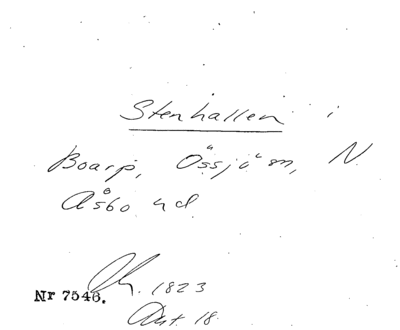 Stenhallen i
Boarp, Össjö sn, N.
Åsbo hd.
1823
Nr 7546.
Akt. 18.